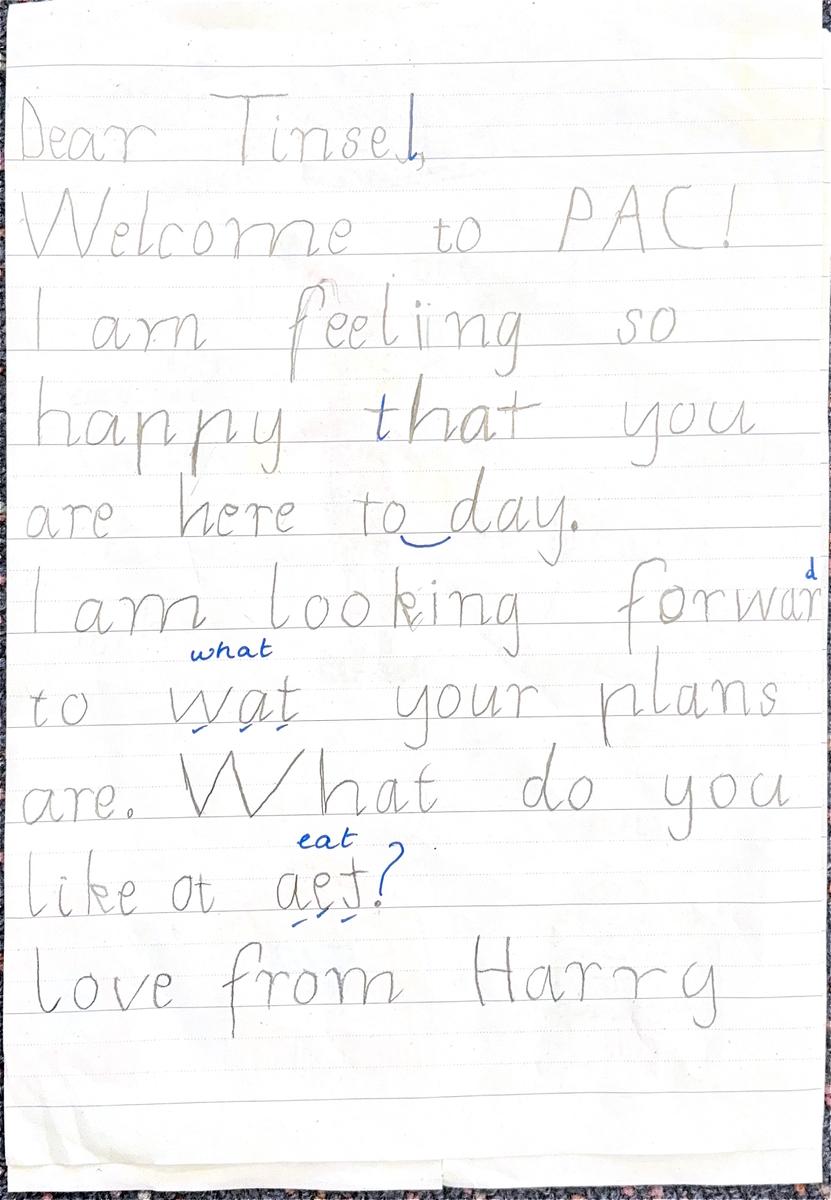 Dear Tinsel,
Welcome to PAC!
I am feeling so
happy that you
are here to day.
I am looking forward
what
to wat your plans
are. What do you
eat
like ot aet?
love from Harry